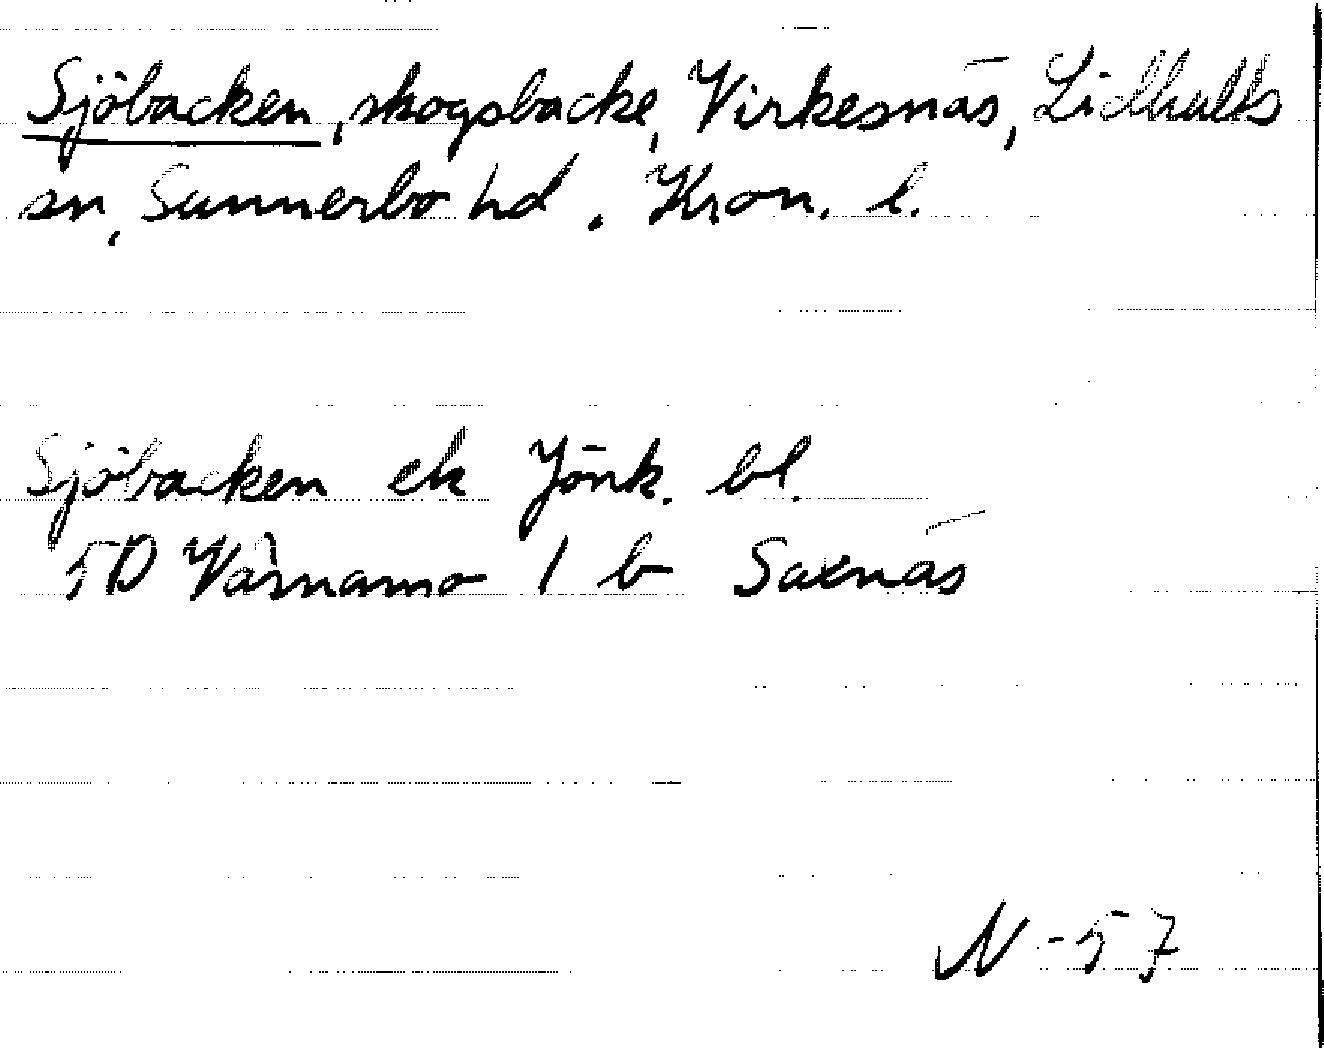 Sjöbacken, skogsbacke, Virkesnäs, Lidhults
sn, Sunnerbo hd. Kron. l.
Sjöbacken ek Jönk. bl.
5D Värnamo 1 b Saxnäs
N-57